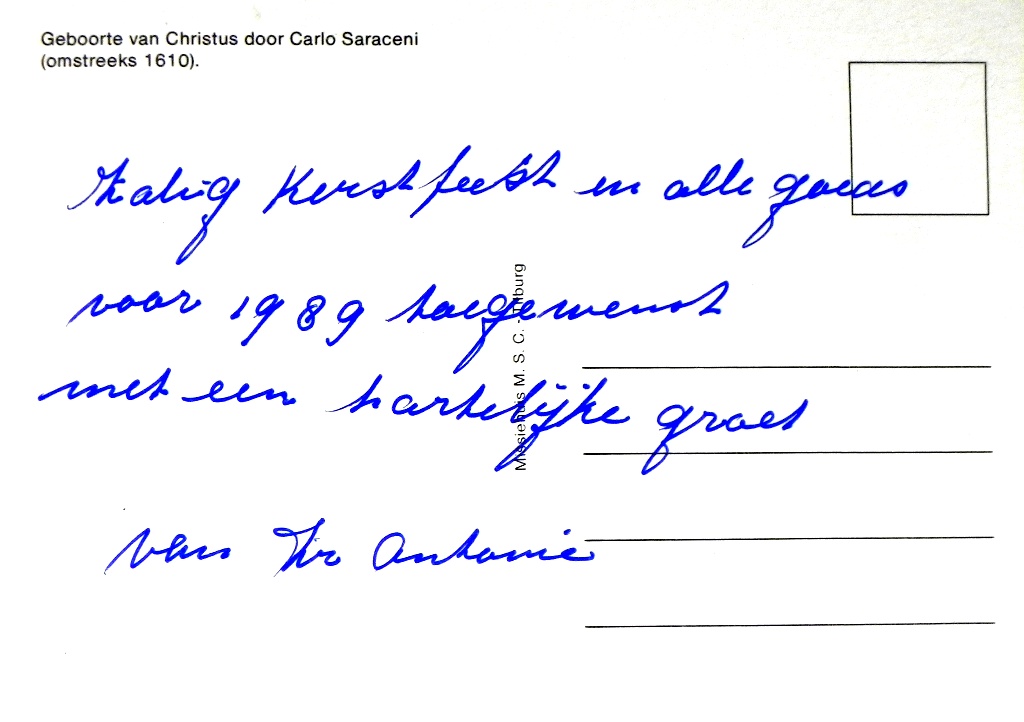 Geboorte van Christus door Carlo Saraceni
(omstreeks 1610).
Zalig Kerstfeest en alle goeds
voor 1989 toegewenst
met een hartelijke groet
van Zr Antonie
Missiehuis M. S. C. - Tilburg